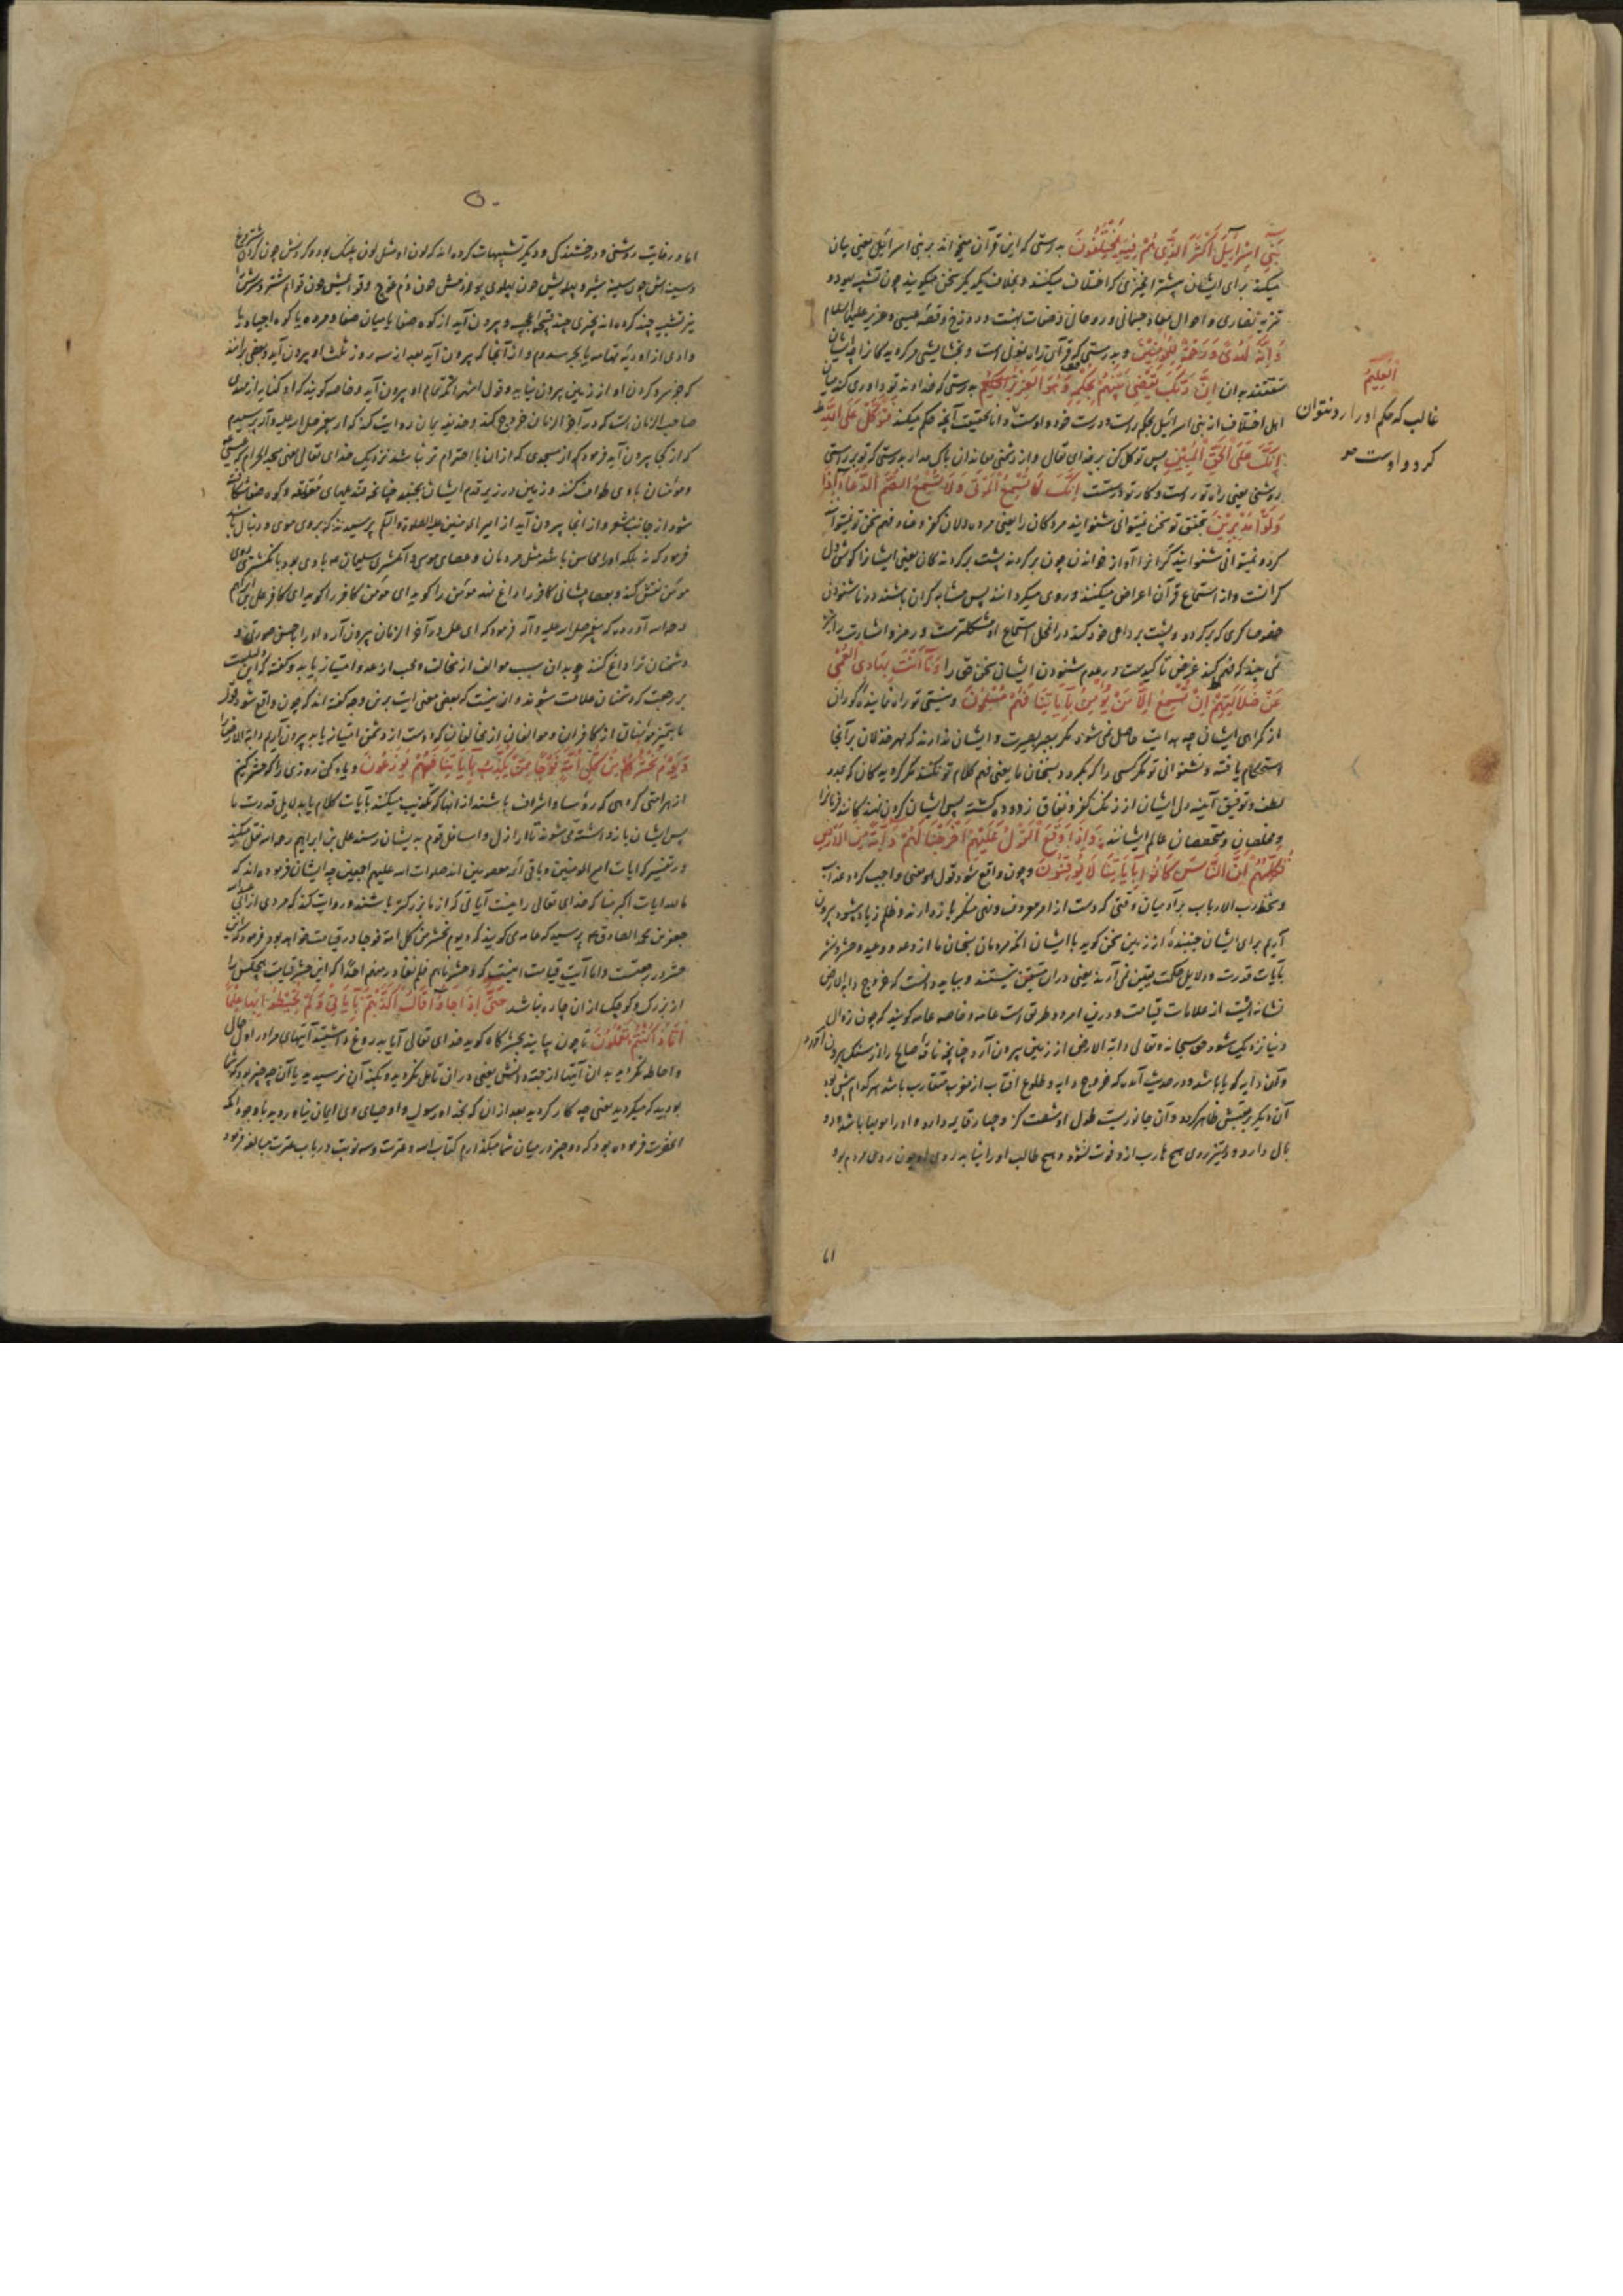 بَنِي اِسْرَآئِيلَ اَكْثَرَ الَّذِي هُمْ فِيهِ يَخْتَلِفُونَ بدرستی که این قرآن میخواند بر بنی اسرائیل یعنی بیان
میکند برای ایشان بیشتر آنچیزی که اختلاف میکنند و بخلاف یکدیگر سخن میگویند چون تشبیه یهود و
تنزیه نصاری و احوال معاد جسمانی و روحانی و صفات بهشت و دوزخ و قصه عیسی و عزیر علیه السلام
وَاِنَّهُ لَهُدًى وَرَحْمَةٌ لِلْمُؤْمِنِينَ و بدرستی که قرآن راه نمونی است و بخشایشی مر گرویدگان را چه ایشان
منتفعند بدان اِنَّ رَبَّكَ يَقْضِي بَيْنَهُمْ بِحُكْمِهِ وَهُوَ الْعَزِيزُ الْعَلِيمُ بدرستی که خداوند تو داوری کند میان
اهل اختلاف از بنی اسرائیل بحکم راست و درست خود و اوست دانا بحقیقت آنچه حکم میکند فَتَوَكَّلْ عَلَى اللَّهِ
اِنَّكَ عَلَى الْحَقِّ الْمُبِينِ پس توکل کن بر خدای تعالی و از دشمنی معاندان باک مدار بدرستی که تو بر راستی
روشنی یعنی راه تو راست و کار تو درست اِنَّكَ لَا تُسْمِعُ الْمَوْتَى وَلَا تُسْمِعُ الصُّمَّ الدُّعَاءَ اِذَا
وَلَّوْا مُدْبِرِينَ بتحقیق تو سخن نمیتوانی شنوانید مردکان را یعنی مرده دلان کفر و عناد فهم سخن تو نمیتوانند
کرد و نمیتوانی شنوانید کرانرا آواز خواندن چون برگردند پشت برگردندگان یعنی ایشانرا گوش دل
کرانست و از استماع قرآن اعراض میکنند و روی میگردانند پس مشابه کران باشند در ناشنودن
خصوصا کری که برگردد و پشت بر داعی خود کند در این محل استماع او مشکلترست و رمز و اشارت را نیز
نمی بیند که فهم کند غرض تاکیدست در عدم شنودن ایشان سخن حق را وَمَا اَنْتَ بِهَادِي الْعُمْيِ
عَنْ ضَلَالَتِهِمْ اِنْ تُسْمِعُ اِلَّا مَنْ يُؤْمِنُ بِآيَاتِنَا فَهُمْ مُسْلِمُونَ و نیستی تو راه نماینده کوران
از گمراهی ایشان چه هدایت حاصل نمی شود مگر ببصر بصیرت و ایشان ندارند که مهر خذلان بر آنجا
استحکام یافته و نشنوانی تو مگر کسی را که بگرود بسخنان ما یعنی فهم کلام تو نکنند مگر گرویدگان که بمدد
لطف و توفیق آئینه دل ایشان از زنگ کفر و نفاق زدوده گشته پس ایشان گردن نهندکانند فرمانرا
و مخلصان و متخصصان عالم ایشانند وَاِذَا وَقَعَ الْقَوْلُ عَلَيْهِمْ اَخْرَجْنَا لَهُمْ دَابَّةً مِنَ الْاَرْضِ
تُكَلِّمُهُمْ اَنَّ النَّاسَ كَانُوا بِآيَاتِنَا لَا يُوقِنُونَ و چون واقع شود قول یعنی واجب گردد عذاب
و سخط رب الارباب بر آدمیان وقتی که دست از امر معروف و نهی منکر بازدارند و ظلم زیاد شود بیرون
آریم برای ایشان جنبنده از زمین سخن گوید با ایشان آنکه مردمان بسخنان ما از وعد و وعید و حشر و نشر
بآیات قدرت و دلایل حکمت یقین نمی آرند یعنی در آن متیقن نیستند و بباید دانست که خروج دابة الارض
نشانه ایست از علامات قیامت و درین امر دو طریق است عامه و خاصه عامه گویند که چون زوال
دنیا نزدیک شود حق سبحانه و تعالی دابة الارض از زمین بیرون آرد چنانچه ناقه صالح را از سنگ بیرون آورد
و آن دابه گویا باشد و در حدیث آمده که خروج دابه و طلوع آفتاب از مغرب متقارب باشد هر کدام پیش بود
آن دیگر بر عقبش ظاهر گردد و آن جانوریست طول او شصت گز و چهار قایمه دارد و او را مویها باشد و دو
بال دارد و در تیزروی هیچ هارب ازو فوت نشود و هیچ طالب او را نیابد روی او چون روی مردم بود
الْعَلِيمُ
غالب که حکم او را رد نتوان
کرد و اوست
٦١
٥٠
اما در غایت روشنی و درخشندگی و دیگر تشبیهات کرده اند که لون او مثل لون پلنگ بود و گردنش چون گردن شترمرغ
و سینه اش چون سینه شیر و پهلویش چون پهلوی یوز و دمش چون دم قوچ و قوایمش چون قوایم شتر و سرش را
نیز تشبیه چند کرده اند بچیزی چند عجیب و بیرون آید از کوه صفا یا میان صفا و مروه یا کوه اجیاد یا
وادی از اودیه تهامه یا بحر سدوم و از آنجا که بیرون آید بعد از سه روز ثلث او بیرون آید و بعضی برانند
که جز سر و گردن او از زمین بیرون نیاید و قول اشهر آنکه تمام او بیرون آید و خاصه گویند که او کنایه از مهدی
صاحب الزمان است که در آخر الزمان خروج کند و حذیفه یمان روایت کند که از پیغمبر صلی الله علیه و آله پرسیدم
که از کجا بیرون آید فرمود که از مسجدی که از آن با احترام تر نباشد نزدیک خدای تعالی یعنی مسجد الحرام
و مؤمنان با وی طواف کنند و زمین در زیر قدم ایشان بجنبد چنانچه قندیلهای معلقه و کوه صفا شکافته
شود از جانب مشعر و از آنجا بیرون آید از امیرالمؤمنین علیه الصلوة و السلام پرسیدند که
فرمود که نه بلکه او را محاسن باشد مثل مردمان و عصای موسی و انگشتری سلیمان با وی بود با انگشتری روی
مؤمن نقش کند و بعصا پیشانی کافر را داغ نهد مؤمن را گوید ای مؤمن کافر را گوید ای کافر علی بن ابراهیم
رحمه الله آورده که پیغمبر صلی الله علیه و آله فرمود که ای علی در آخر الزمان بیرون آرد او را باحسن صورتی و
دشمنان ترا داغ کنند و بدان سبب موالف از مخالف و محب از عدو امتیاز یابد و گفته که این
بر رجعت که دشمنان علامت شوند و ازینست که بعضی معنی آیت برین وجه گفته اند که چون واقع شود قول
ما بتمییز مؤمنان از کافران و موالفان از مخالفان که دوست از دشمن امتیاز یابد بیرون آریم دابة الارض را
وَيَوْمَ نَحْشُرُ مِنْ كُلِّ اُمَّةٍ فَوْجًا مِمَّنْ يُكَذِّبُ بِآيَاتِنَا فَهُمْ يُوزَعُونَ و یاد کن روزی را که حشر کنیم
از هر امتی گروهی که رؤسا و اشراف باشند از آنها که تکذیب میکنند بآیات کلام یا بدلایل قدرت ما
پس ایشان بازداشته می شوند تا اراذل و اسافل قوم بدیشان رسند علی بن ابراهیم رحمه الله نقل میکند
در تفسیر که آیات امیرالمؤمنین و باقی ائمه معصومین اند صلوات الله علیهم اجمعین چه ایشان فرموده اند که
ما لله آیات اکبر منا که خدای تعالی را نیست آیاتی که از ما بزرگتر باشند و روایت کند که مردی از ابی عبدالله
جعفر بن محمد الصادق ع پرسید که عامه می گویند که و یوم نحشر من کل امة فوجا در قیامت خواهد بود فرمود که این
حشر در رجعتست و اما آیت قیامت اینست که و حشرناهم فلم نغادر منهم احدا که این حشر قیامت هیچکس را
از بزرگ و کوچک از آن چاره نباشد حَتَّى اِذَا جَاؤُا قَالَ اَكَذَّبْتُمْ بِآيَاتِي وَلَمْ تُحِيطُوا بِهَا عِلْمًا
اَمَّاذَا كُنْتُمْ تَعْمَلُونَ تا چون بیایند بحشرگاه گوید خدای تعالی آیا بدروغ داشتید آیتهای مرا در اول حال
و احاطه نکردید بدان آیتها از جهت دانش یعنی در آن تامل نکردید و بکنه آن نرسیدید یا آن چه چیز بود که شما
بودید که میکردید یعنی چه کار کردید بعد از آن که بخدا و رسول و اوصیای وی ایمان نیاوردید با وجود آنکه
آنحضرت فرموده بود که دو چیز در میان شما میگذارم کتاب الله و عترت و سه نوبت در باب عترت مبالغه فرمود